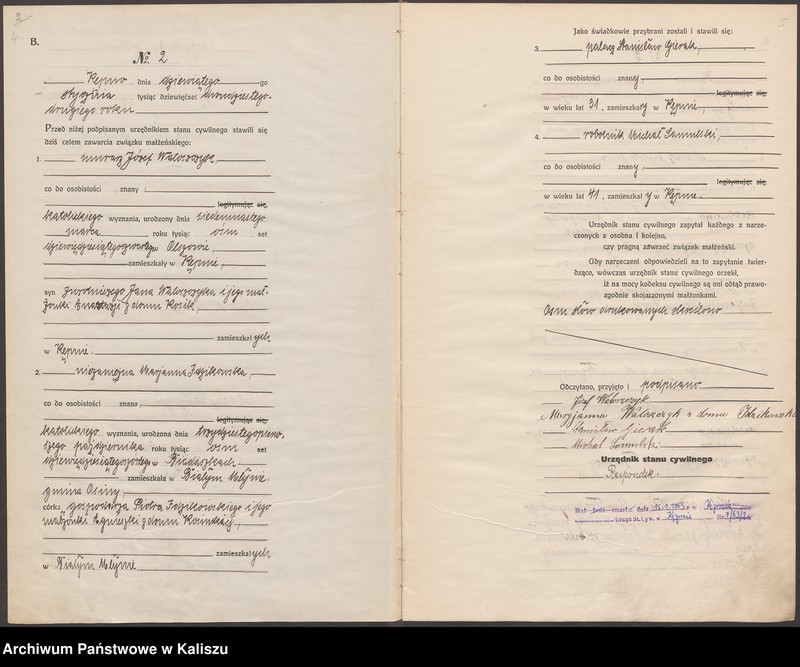 B.
№ 2
Kępno dnia dziewiątego go
stycznia tysiąc dziewięćset dwudziestego
drugiego roku
Przed niżej podpisanym urzędnikiem stanu cywilnego stawili się
dziś celem zawarcia związku małżeńskiego:
1. murarz Józef Walaszczyk,
co do osobistości znany,
legitymując się,
katolickiego wyznania, urodzony dnia siedemnastego
marca roku tysiąc osm set
dziewięćdziesiątego czwartego w Olszowie,
zamieszkały w Kępnie,
syn zwrotniczego Jana Walaszczyka i jego mał-
żonki Anastazji z domu Kosik,
zamieszkałych
w Kępnie.
2. niezamężna Marjanna Idzikowska,
co do osobistości znana,
legitymując się,
katolickiego wyznania, urodzona dnia trzydziestegopierw-
szego października roku tysiąc osm set
dziewięćdziesiątego w
zamieszkała w Białym Młynie,
gmina Osiny,
córka gospodarza Piotra Idzikowskiego i jego
małżonki Agnieszki z domu
zamieszkałych
w Białym Młynie.
Jako świadkowie przybrani zostali i stawili się:
3. palacz Stanisław Gierak,
co do osobistości znany,
legitymując się,
w wieku lat 31, zamieszkały w Kępnie,
4. robotnik Michał
co do osobistości znany,
legitymując się,
w wieku lat 41, zamieszkały w Kępnie.
Urzędnik stanu cywilnego zapytał każdego z narze-
czonych z osobna i kolejno,
czy pragną zawrzeć związek małżeński.
Gdy narzeczeni odpowiedzieli na to zapytanie twier-
dząco, wówczas urzędnik stanu cywilnego orzekł,
iż na mocy kodeksu cywilnego są oni odtąd prawo-
zgodnie skojarzonymi małżonkami.
Osm słów drukowanych skreślono
Odczytano, przyjęto i podpisano
Józef Walaszczyk.
Maryjanna Walaszczyk z domu Idzikowska
Stanisław Gierak
Michał
Urzędnik stanu cywilnego
Rospondek.
Mąż żona zmarł dnia 15.1.1963 r. w Kępnie
Urząd St. Cyw. w Kępnie Nr. 7/63/1
Archiwum Państwowe w Kaliszu